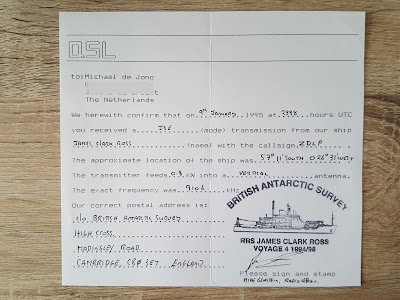 QSL
to: Michael de Jong
The Netherlands
We herewith confirm that on 9th January 1995 at hours UTC
you received a J3E (mode) transmission from our ship
James Clark Ross (name) with the callsign ZDLP
The approximate location of the ship was: 57° 11' South 026° West
The transmitter feeds 0.8 kW into a Vertical antenna.
The exact frequency was kHz
Our correct postal address is:
c/o British Antarctic Survey
High Cross
Madingley Road
Cambridge CB3 0ET England
BRITISH ANTARCTIC SURVEY
RRS JAMES CLARK ROSS
VOYAGE 4 1994/95
Please sign and stamp
Mike Radio Officer